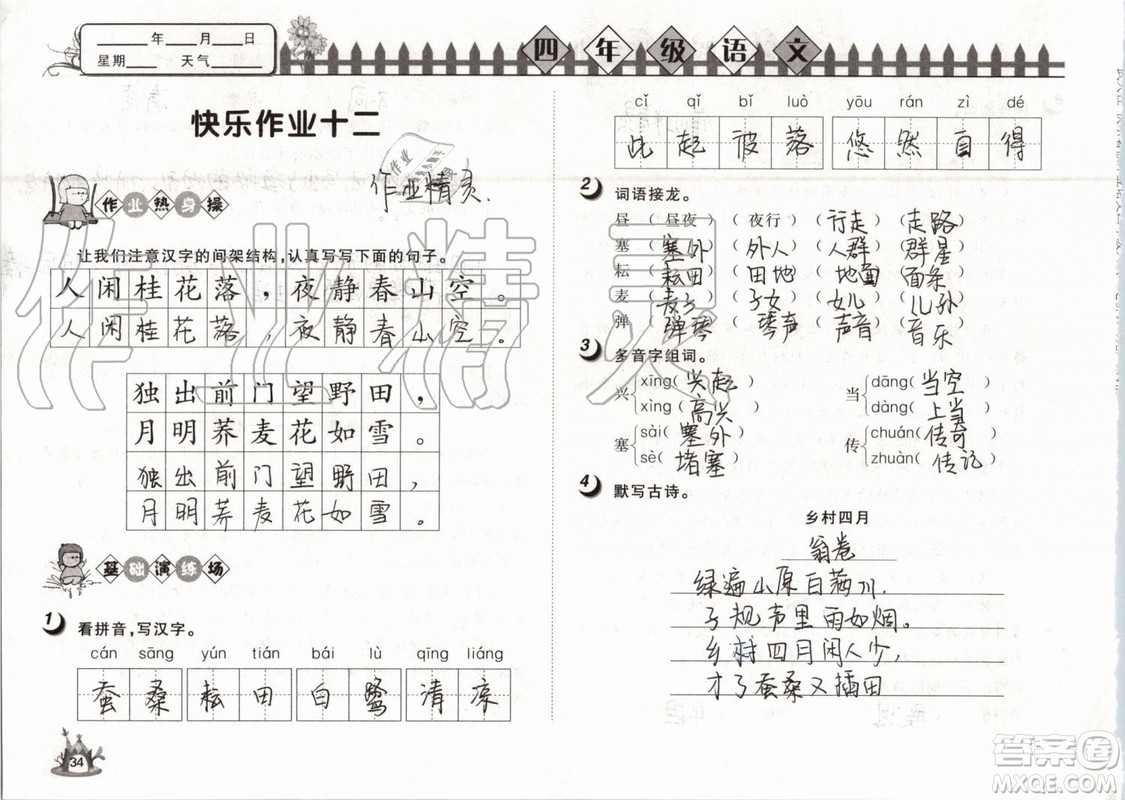 ____年____月____日
星期____ 天气______
四年级语文
快乐作业十二
作业精灵
作业热身操
让我们注意汉字的间架结构，认真写写下面的句子。
人闲桂花落，夜静春山空。
人闲桂花落，夜静春山空。
独出前门望野田，
月明荞麦花如雪。
独出前门望野田，
月明荞麦花如雪。
基础演练场
1 看拼音，写汉字。
cán sāng yún tián bái lù qīng liáng
蚕桑 耘田 白鹭 清凉
cǐ qǐ bǐ luò yōu rán zì dé
此起彼落 悠然自得
2 词语接龙。
昼（昼夜）（夜行）（行走）（走路）
塞（塞外）（外人）（人群）（群星）
耘（耘田）（田地）（地面）（面条）
麦（麦子）（子女）（女儿）（儿孙）
弹（弹琴）（琴声）（声音）（音乐）
3 多音字组词。
兴 xīng（兴起） 当 dāng（当空）
xìng（高兴） dàng（上当）
塞 sài（塞外） 传 chuán（传奇）
sè（堵塞） zhuàn（传记）
4 默写古诗。
乡村四月
翁卷
绿遍山原白满川，
子规声里雨如烟。
乡村四月闲人少，
才了蚕桑又插田
34
作业精灵
答案卷
MXQE.COM